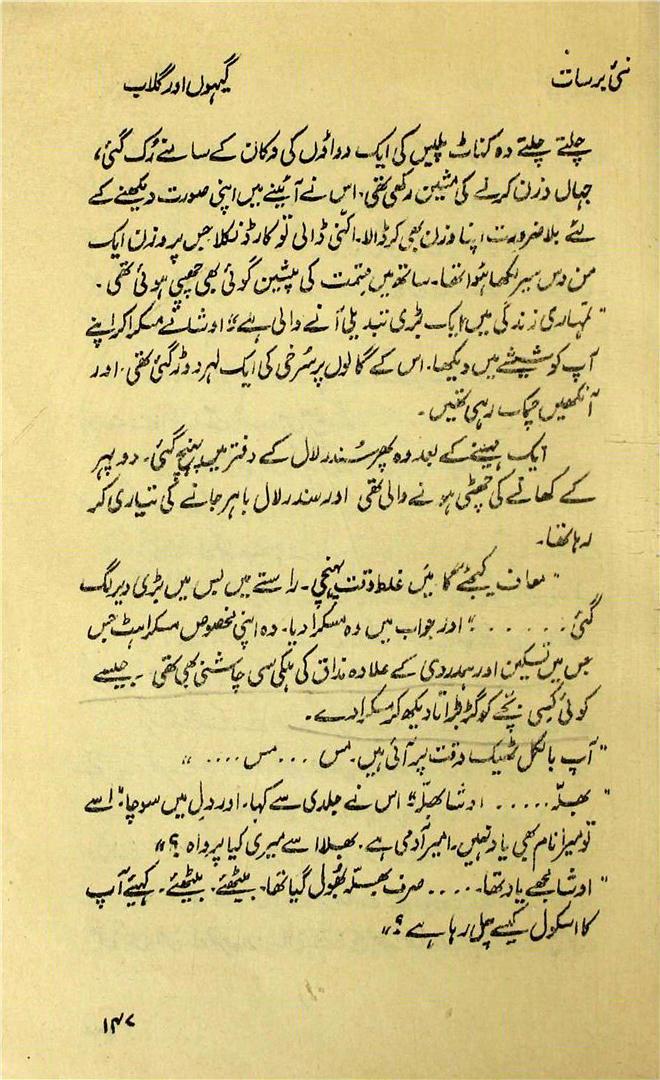 نئی برسات
گیہوں اور گلاب
چلتے چلتے وہ کناٹ پلیس کی ایک دواؤں کی دکان کے سامنے رُک گئی،
جہاں وزن کرنے کی مشین رکھی تھی۔ اس نے آئینے میں اپنی صورت دیکھنے کے
لئے بلا ضرورت اپنا وزن بھی کر ڈالا۔ اکنی ڈالی تو کارڈ نکلا جس پر وزن ایک
من دس سیر لکھا ہوا تھا۔ ساتھ میں قسمت کی پیشین گوئی بھی چھپی ہوئی تھی۔
"تمہاری زندگی میں ایک بڑی تبدیلی آنے والی ہے" اوشا نے مسکرا کر اپنے
آپ کو شیشے میں دیکھا۔ اس کے گالوں پر سُرخی کی ایک لہر دوڑ گئی تھی۔ اور
آنکھیں چمک رہی تھیں۔
ایک مہینے کے بعد وہ پھر سُندر لال کے دفتر میں پہنچ گئی۔ دوپہر
کے کھانے کی چھٹی ہونے والی تھی اور سندر لال باہر جانے کی تیاری کر
رہا تھا۔
"معاف کیجئے گا میں غلط وقت پہنچی۔ راستے میں بس میں بڑی دیر لگ
گئی......" اور جواب میں وہ مسکرا دیا۔ وہ اپنی مخصوص مسکراہٹ جس
جس میں تسکین اور ہمدردی کے علاوہ مذاق کی ہلکی سی چاشنی بھی تھی۔ جیسے
کوئی کسی بچّے کو گڑبڑاتا دیکھ کر مسکرا دے۔
"آپ بالکل ٹھیک وقت پر آئی ہیں۔ مس ... مس ...."
"بھلّہ..... اوشا بھلّہ" اس نے جلدی سے کہا۔ اور دل میں سوچا: اسے
تو میرا نام بھی یاد نہیں۔ امیر آدمی ہے۔ بھلا اسے میری کیا پرواہ؟"
"اوشا مجھے یاد تھا..... صرف بھلّہ بھُول گیا تھا۔ بیٹھئے۔ بیٹھئے۔ کہئیے آپ
کا اسکول کیسے چل رہا ہے؟"
۱۴۷